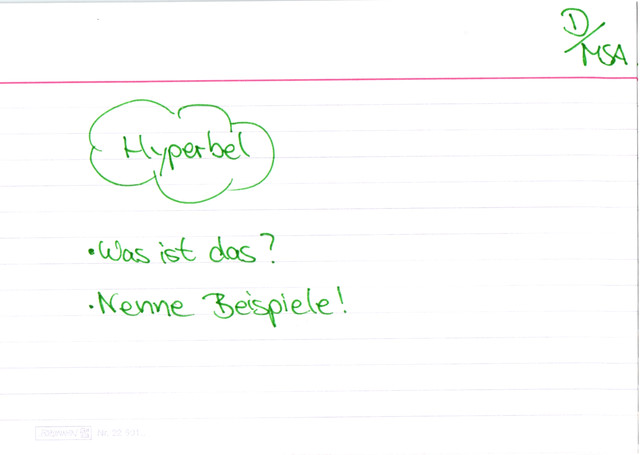 D/MSA
Hyperbel
• Was ist das?
• Nenne Beispiele!